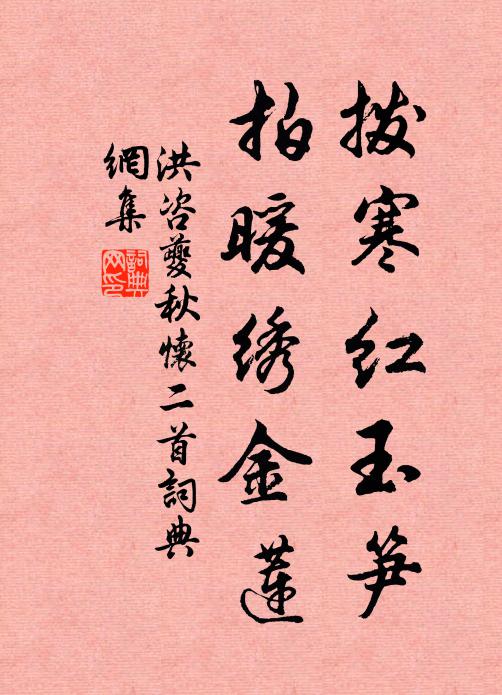 拨寒红玉笋
拍暖绣金莲
洪咨夔秋懷二首詞典
網集
詞典
网印